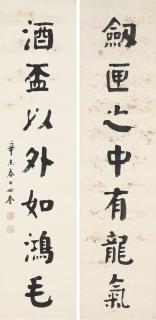 劔匣之中有龍氣
酒盃以外如鴻毛
辛未春日